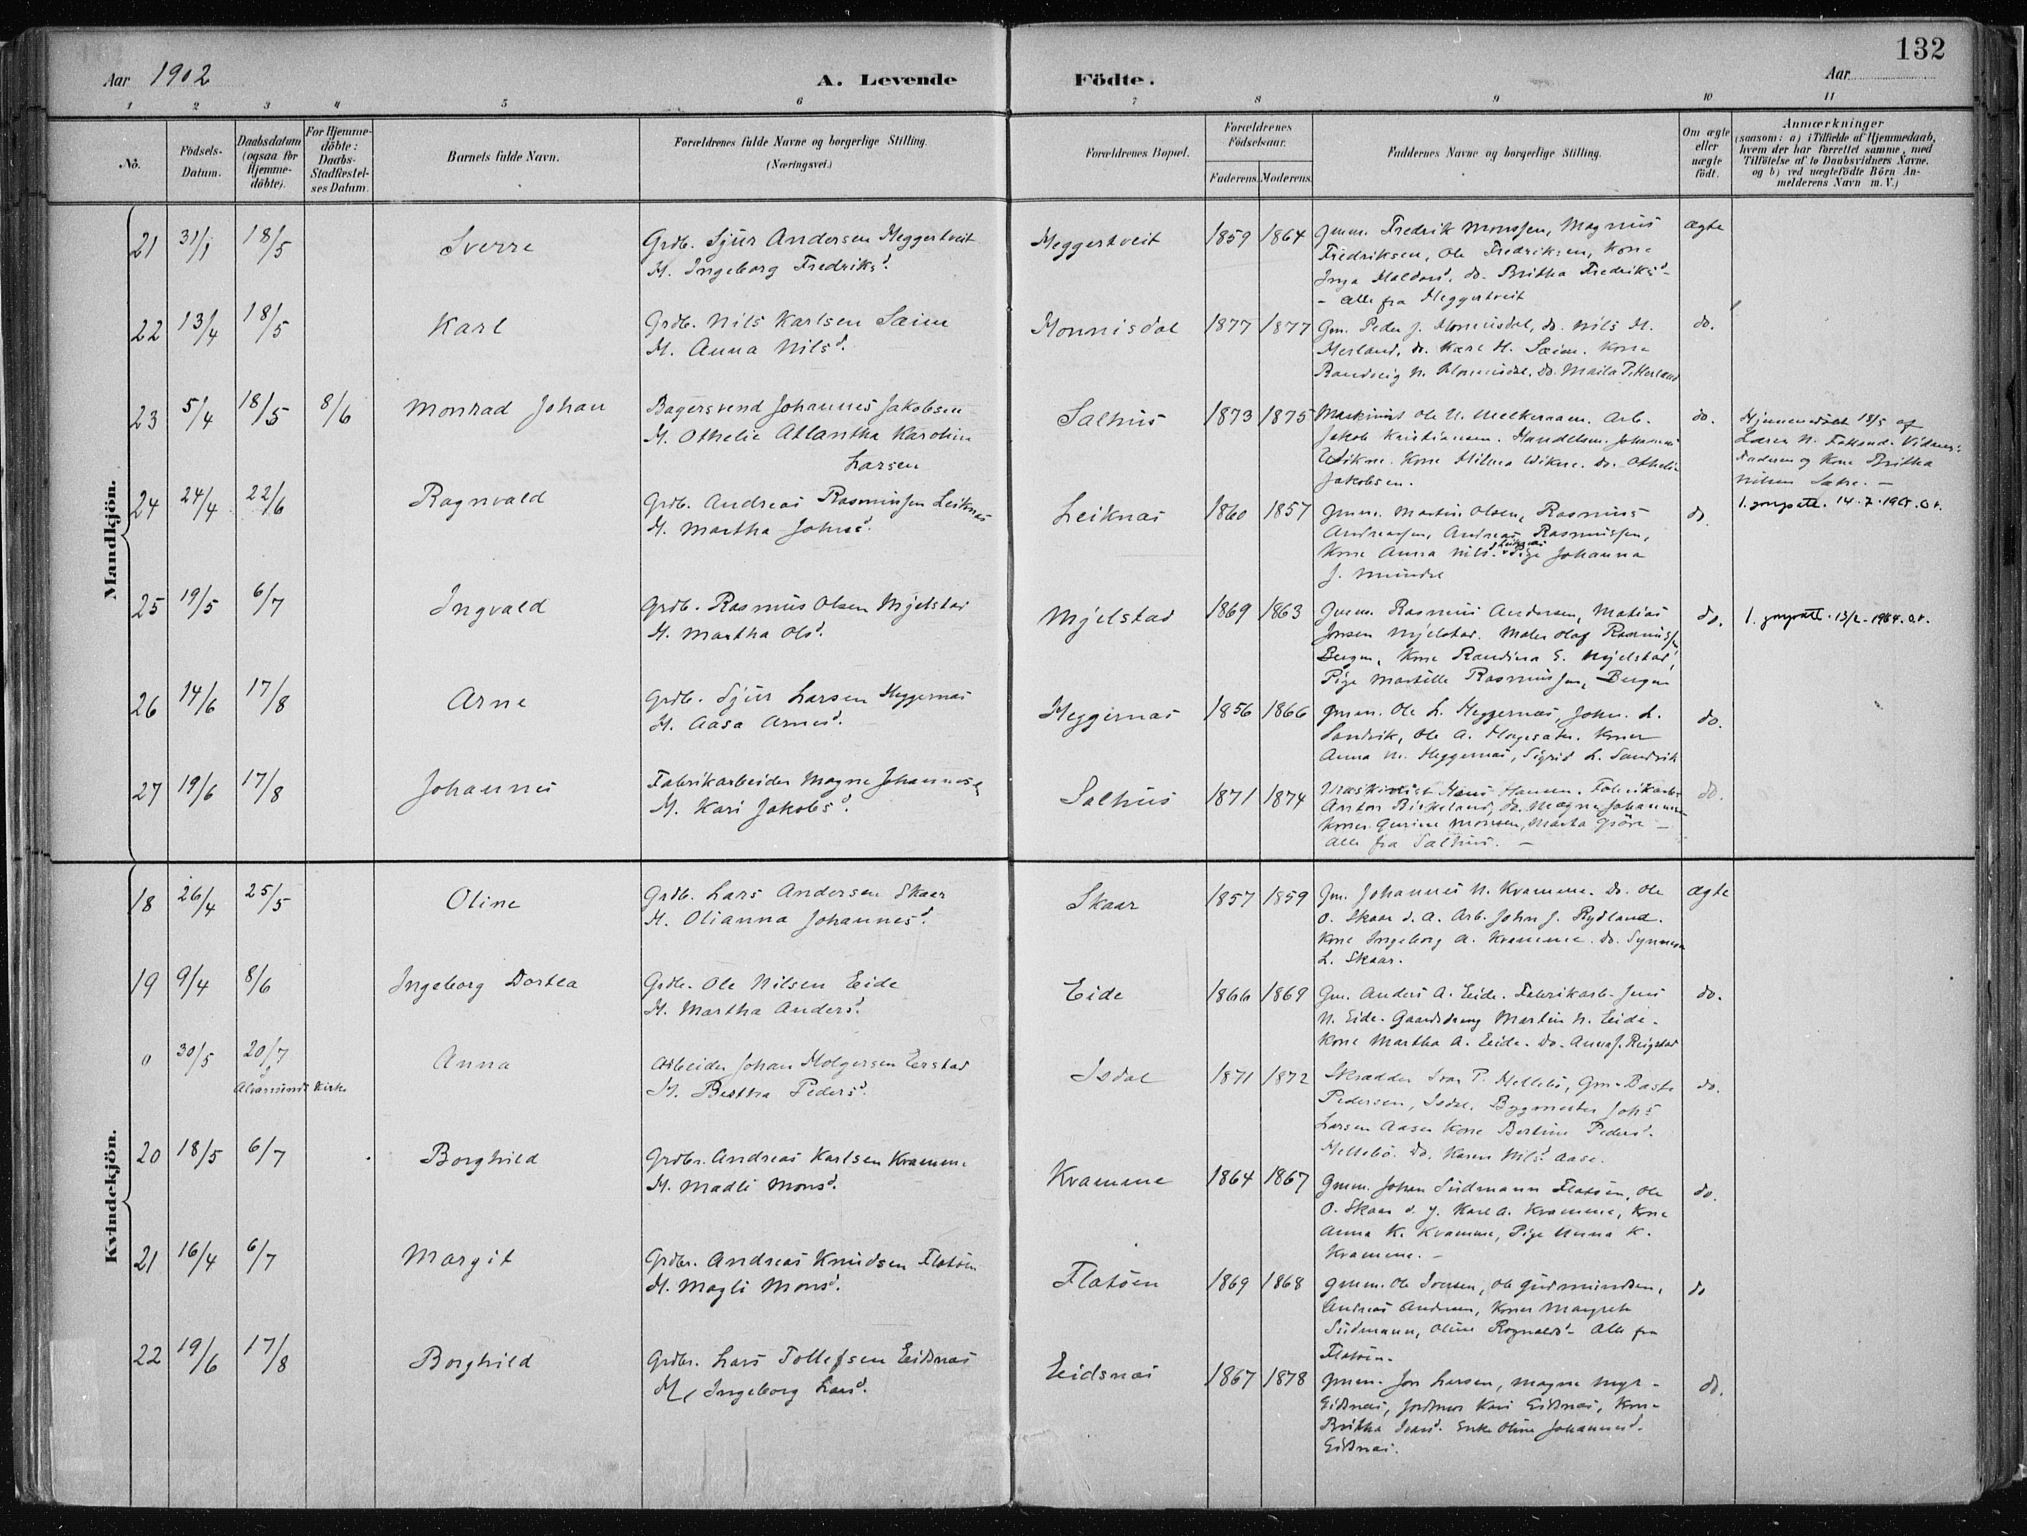 132
Aar 1902
A. Levende Födte.
Aar
1 2 3 4 5 6 7 8 9 10 11
No.
Födsels-Datum.
Daabsdatum (ogsaa for Hjemme-döbte).
For Hjemme-döbte: Daabs-Stadfæstel-ses Datum.
Barnets fulde Navn.
Forældrenes fulde Navne og borgerlige Stilling. (Næringsvei.)
Forældrenes Bopæl.
Forældrenes Födselsaar.
Faderens. Moderens.
Faddernes Navne og borgerlige Stilling.
Om ægte eller uægte födt.
Anmærkninger
(saasom: a) i Tilfælde af Hjemmedaab,
hvem der har forrettet samme, med
Tilföielse af to Daabsvidners Navne.
og b) ved uægtefödte Börn An-
melderens Navn m. V.)
Mandkjön.
21 31/1 18/5 Sverre
Grdb. Sjur Andersen Heggertveit
H. Ingeborg Fredriksd.
Heggertveit 1859 1864
Gmm. Fredrik Monssen, Magnus
Fredriksen, Ole Fredriksen, Kone
Inga Haldorsd. do. Britha Fredriksd
- alle fra Heggertveit
ægte
22 13/4 18/5 Karl
Grdb. Nils Karlsen Sæim
H. Anna Nilsd.
Honnisdal 1877 1877
Gm. Peder J. Honnisdal, do. Nils H.
Herland, do. Karl H. Sæim. Kone
Randveig N. Honnisdal. do. Maila P. Herland
do.
23 5/4 18/5 8/6 Monrad Johan
Bagersvend Johannes Jakobsen
H. Othelie Atlantha Karoline
Larsen
Salhus 1873 1875
Maskinist Ole N. Melkeraaen. Arb.
Jakob Kristiansen. Handelsm. Johannes
Vikne. Kone Hilma Vikne. do. Othelie
Jakobsen.
do.
Hjemmedöbt 18/5 af
Lærer N. Fotland. Vidner:
Faderen og Kone Britha
Nilsen Sætre. -
24 24/4 22/6 Ragnvald
Grdb. Andreas Rasmussen Leiknæs
H. Martha Johnsd.
Leiknæs 1860 1857
Gmm. Martin Olsen, Rasmus
Andreassen, Andreas Rasmussen,
Kone Anna Nilsd. Leiknæs Pige Johanna
J. Mundal
do.
14.7.1965.
25 19/5 6/7 Ingvald
Grdb. Rasmus Olsen Mjelstad
H. Martha Olsd.
Mjelstad 1869 1863
Gmm. Rasmus Andersen, Matias
Jonsen Mjelstad. Maler Olaf Rasmussen
Bergen, Kone Randina E. Mjelstad,
Pige Martille Rasmussen, Bergen
do.
13/2-1964.
26 14/6 17/8 Arne
Grdb. Sjur Larsen Heggernæs
H. Aasa Arnesd.
Heggernæs 1856 1866
Gmm. Ole L. Heggernæs, John L.
Sandvik, Ole A. Hagesæter. Koner
Anna M. Heggernæs, Sigrid L. Sandvik
do.
27 19/6 17/8 Johannes
Fabrikarbeider Magne Johannesen
H. Kari Jakobsd.
Salhus 1871 1874
Maskinist Hans Hansen. Fabrikarb.
Anton Birkeland, do. Magne Johannesen
Koner Gurine Monsen, Marta -
alle fra Salhus. -
do.
Kvindekjön.
18 26/4 25/5 Oline
Grdb. Lars Andersen Skaar
H. Olianna Johannesd.
Skaar 1857 1859
Gm. Johannes N. Kramme. do. Ole
O. Skaar d. A. Arb. John J. Rydland.
Kone Ingeborg A. Kramme. do. Synneva
L. Skaar.
ægte
19 9/4 8/6 Ingeborg Dortea
Grdb. Ole Nilsen Eide
H. Martha Andersd.
Eide 1866 1869
Gm. Anders A. Eide. Fabrikarb. Jens
N. Eide. Gaardsdreng Martin N. Eide.
Kone Martha A. Eide. do. Anna J. Reigstad
do.
0 30/5 20/7 Anna
Alversunds Kirke
Arbeider Johan Holgersen Eerstad
H. Bertha Pedersd.
Isdal 1871 1872
Skrædder Ivar P. Hellebö, Gm. Baste
Pedersen, Isdal. Bygmester Johs
Larsen Aase. Kone Bertine Pedersd.
Hellebö. do. Karen Nilsd. Aase.
do.
20 18/5 6/7 Borghild
Grdbr. Andreas Karlsen Kramme
H. Madli Monsd.
Kramme 1864 1867
Gmm. Johan Sudmann Flatöen, Ole
O. Skaar d. y. Karl A. Kramme, Kone
Anna K. Kramme, Pige Anna K.
Kramme. -
do.
21 16/4 6/7 Margit
Grdbr. Andreas Knudsen Flatöen
H. Magli Monsd.
Flatöen 1869 1868
Gmm. Ole Iversen, Ole Gudmundsen,
Andreas Andersen, Koner Margrete
Sudmann, Oline Rognaldsd - alle fra
Flatöen.
do
22 19/6 17/8 Borghild
Grdbr. Lars Tollefsen Eidsnæs
H. Ingeborg Larsd.
Eidsnæs 1867 1878
Gmm. Jon Larsen, Magne Myr -
Eidsnæs, Jordmor Kari Eidsnæs, Kone
Britha Ivarsd. Enke Oline Johannesd.
Eidsnæs.
do.